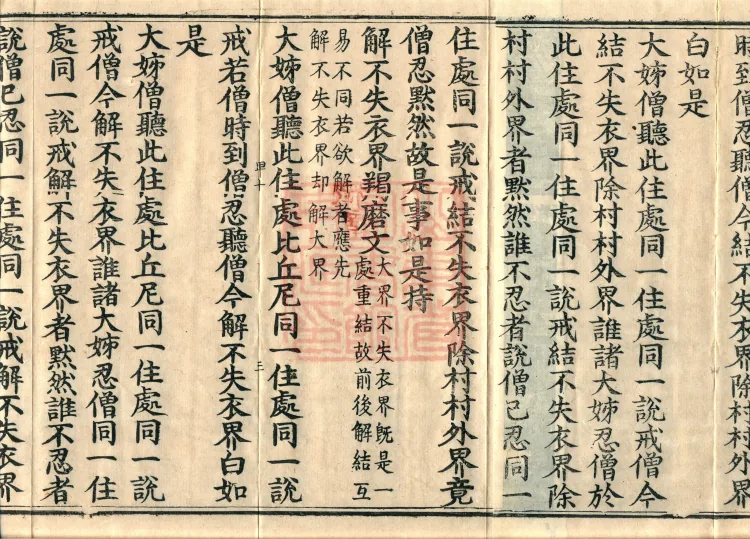 時到僧忍聽僧今結不失衣界除村村外界
白如是
大姊僧聽此住處同一住處同一說戒僧今
結不失衣界除村村外界誰諸大姊忍僧於
此住處同一住處同一說戒結不失衣界除
村村外界者默然誰不忍者說僧已忍同一
住處同一說戒結不失衣界除村村外界竟
僧忍默然故是事如是持
解不失衣界羯磨文
大界不失衣界旣是一
處重結故前後解結互
易不同若欲解者應先
解不失衣界却解大界
大姊僧聽此住處比丘尼同一住處同一說
戒若僧時到僧忍聽僧今解不失衣界白如
是
大姊僧聽此住處比丘尼同一住處同一說
戒僧今解不失衣界誰諸大姊忍僧同一住
處同一說戒解不失衣界者默然誰不忍者
說僧已忍同一住處同一說戒解不失衣界